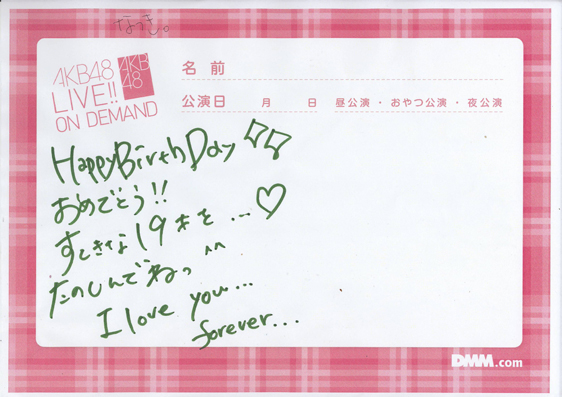 なっき。
AKB48
LIVE!!
ON DEMAND
AKB
48
名 前
公演日 月 日 昼公演 ・ おやつ公演 ・ 夜公演
Happy Birth Day
おめでとう!!
すてきな19才を...♡
たのしんでねっ^^
I love you...
forever...
DMM.com